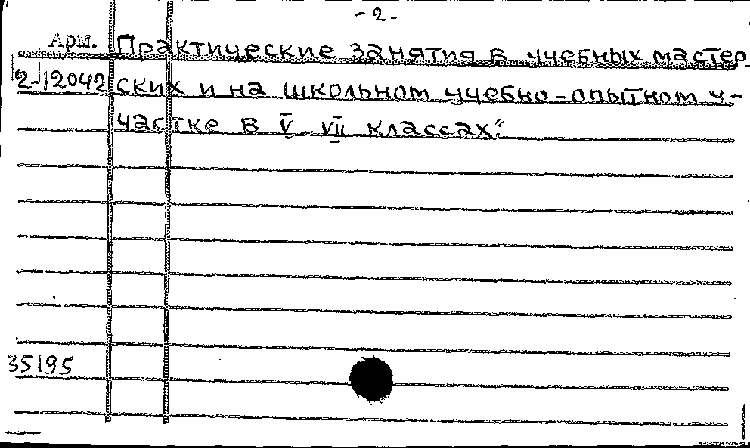 - 2 -
Арм. Практические занятия в учебных мастер
2-12042 ских и на школьном учебно-опытном у-
частке в V - VII классах."
35195